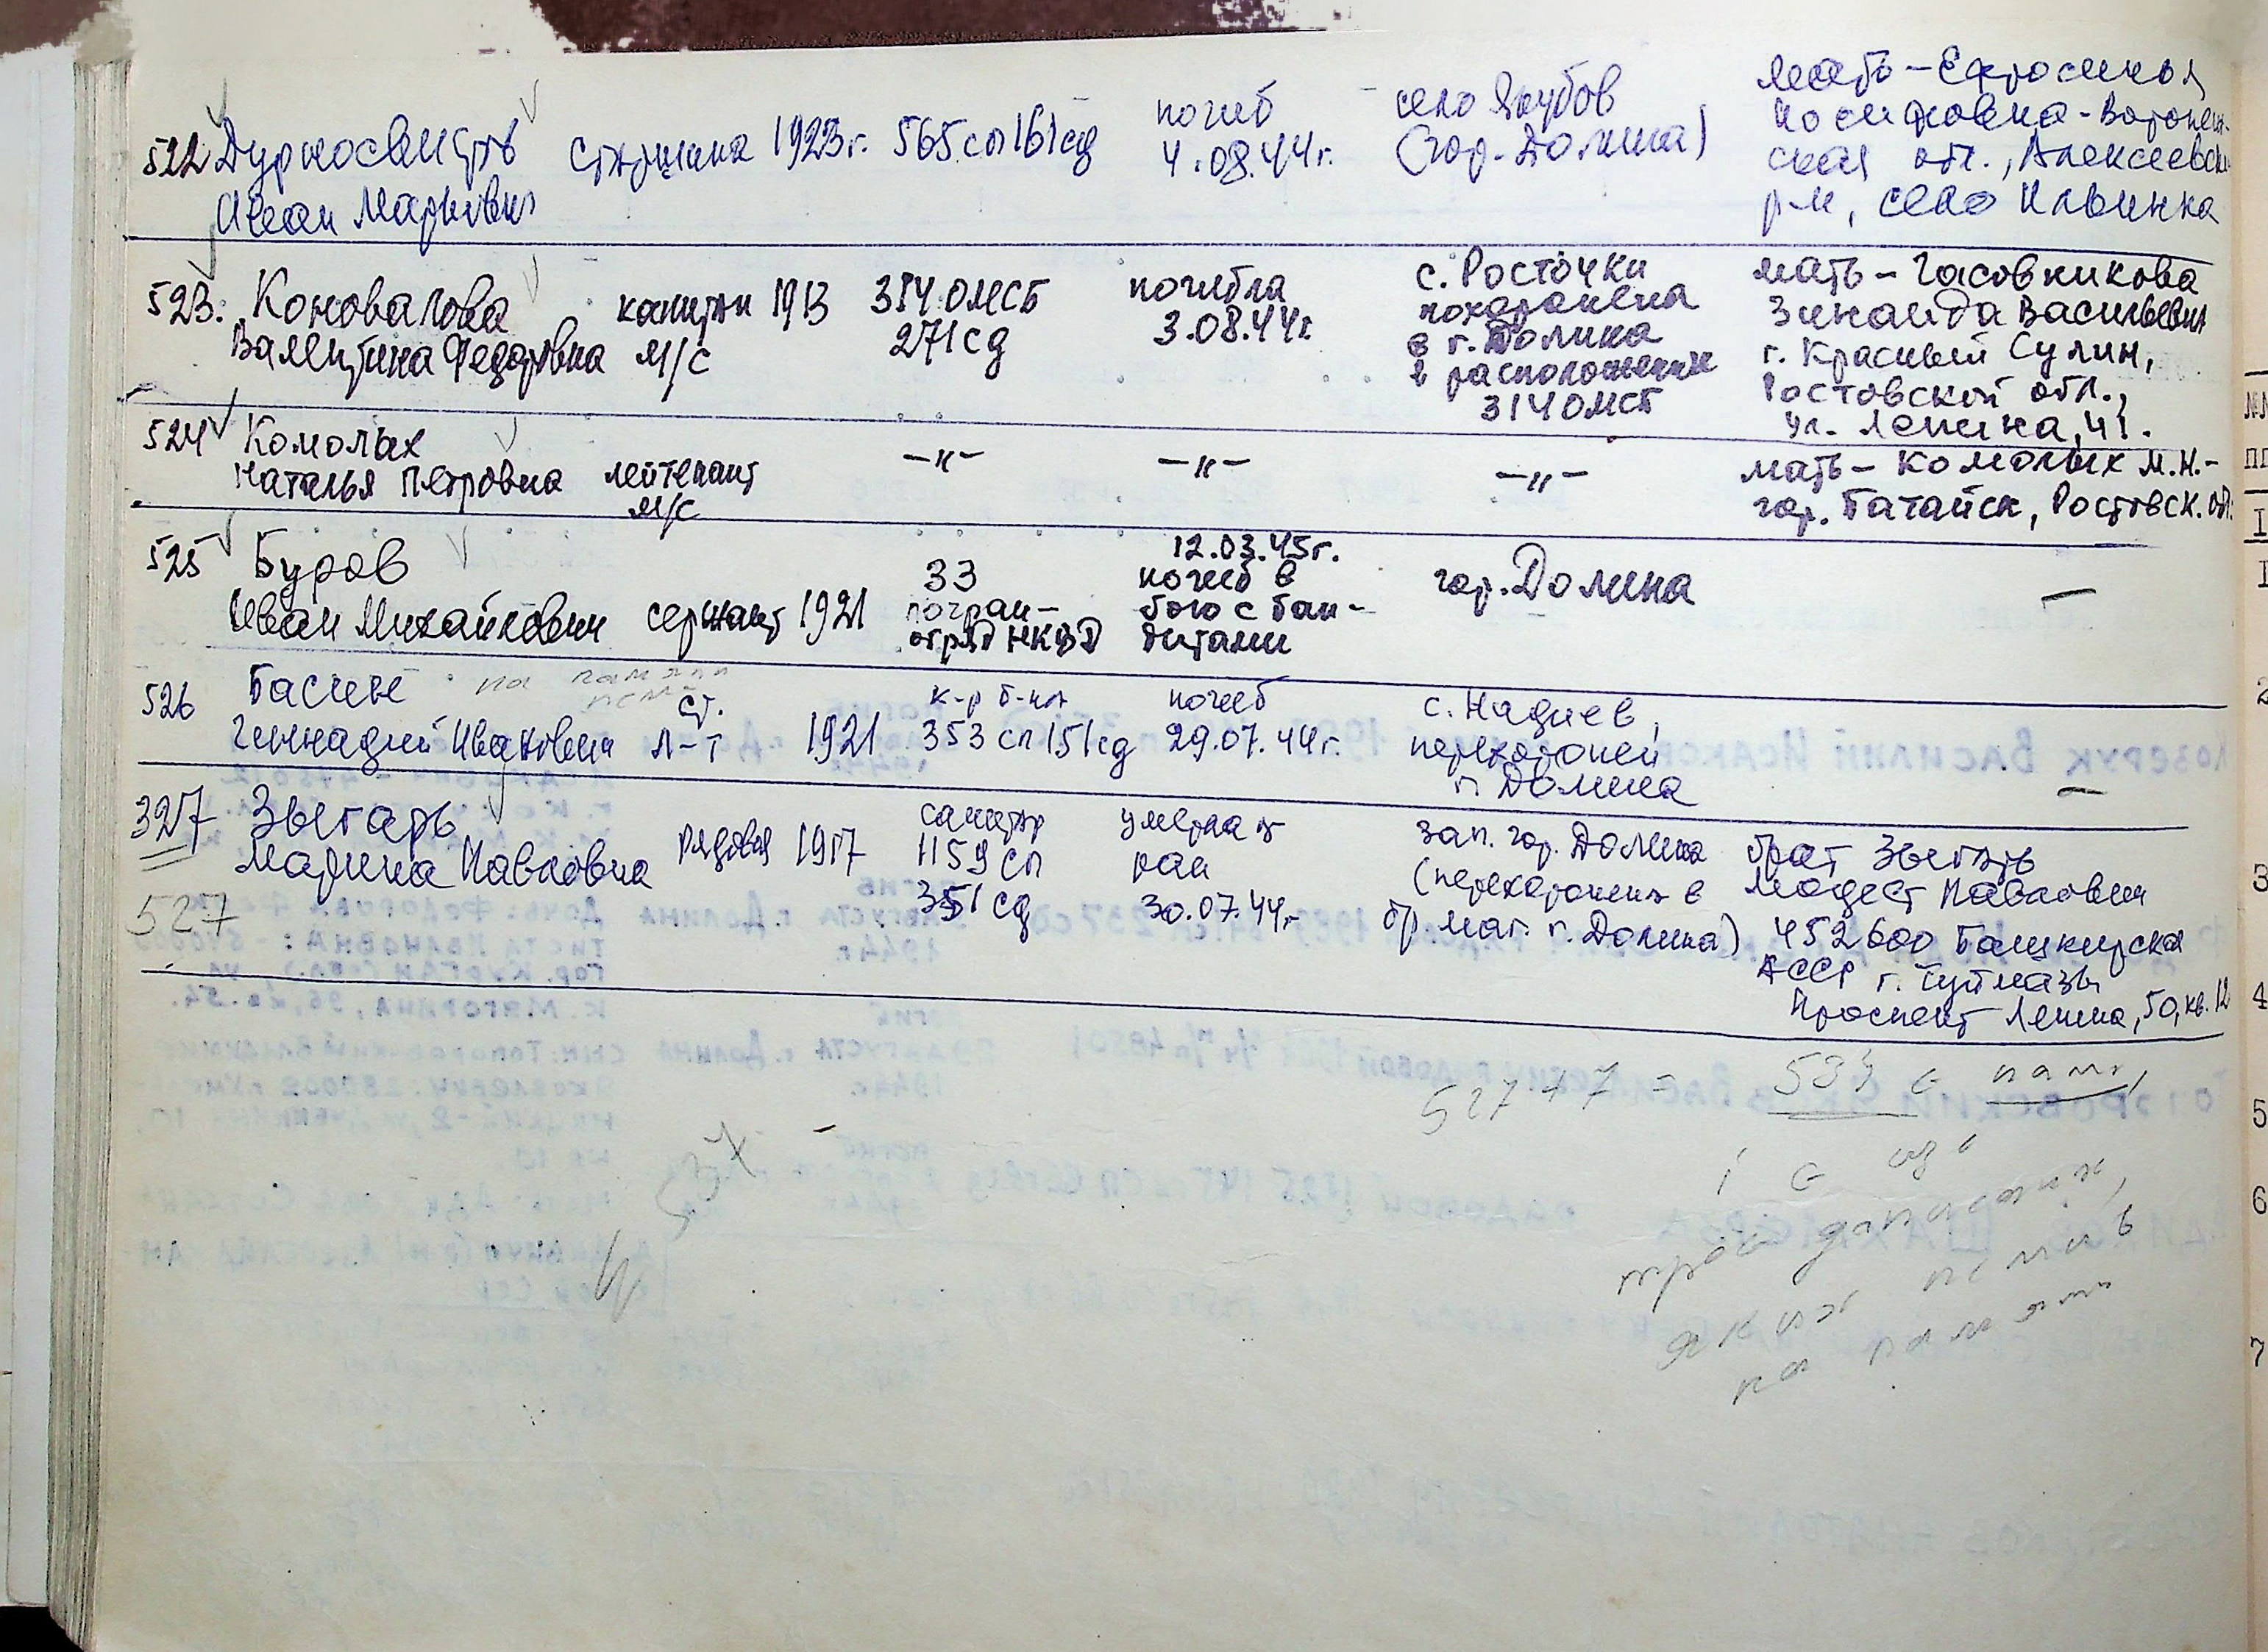 522 Дурносвисть старшина 1923г. 565 сп 161 сд погиб 4.08.44г. село Якубов (гор. Долина) мать – Ефросинья
Иосифовна - Воронеж-
ская обл., Алексеевск.
Иван Маркович р-н, село Ильинка
523. Коновалова капитан 1913 314 ОМСБ погибла с. Росточки мать – Часовникова
Валентина Федоровна м/с 271 сд 3.08.44г. похоронена Зинаида Васильевна
в г. Долина г. Красный Сулин,
в расположении Ростовской обл.,
314 ОМСБ ул. Ленина, 41.
524 Комолых
Наталья Петровна лейтенант –"– –"– –"– мать – Комолых М.Н. –
м/с гор. Батайск, Ростовск. обл.
525 Буров 33 12.03.45г. гор. Долина –
Иван Михайлович сержант 1921 погран- погиб в
отряд НКВД бою с бан-
дитами
526 Басин на памяти
ст. к-р б-на погиб с. Надиев,
Геннадий Иванович л-т 1921 353 сп 151 сд 29.07.44г. перехоронен
г. Долина –
327 Зыгарь санитар умерла от зап. гор. Долина брат Зыгарь
Марина Павловна рядовая 1917 1159 сп ран (перехоронена в Модест Павлович
527 351 сд 30.07.44г. бр. мог. г. Долина) 452600 Башкирская
АССР г. Туймазы
Проспект Ленина, 50, кв. 12
527 + 7 = 534 є
537 – і є ще
троє
яких нема в
на памяти